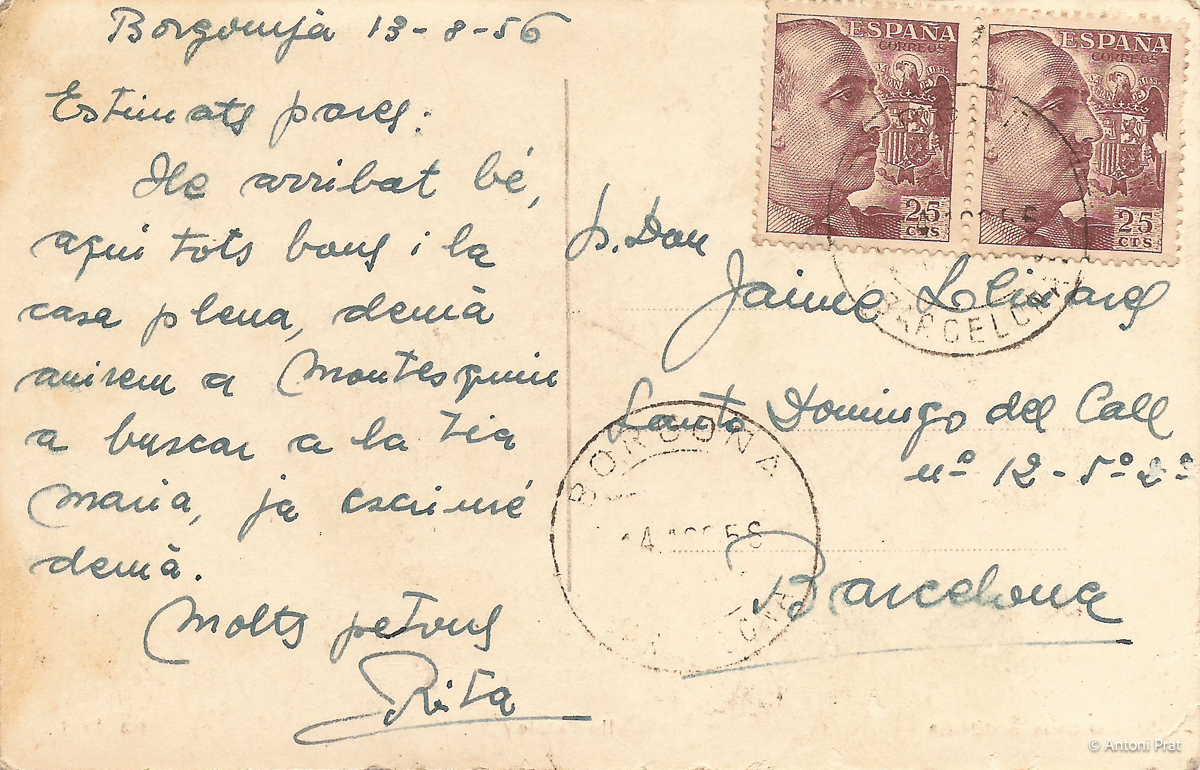 Borgonyà 13-8-56
Estimats pares:
He arribat bé,
aqui tots bons i la
casa plena, demà
anirem a Montesquiu
a buscar a la tia
Maria, ja escriuré
demà.
Molts petons
Rita
ESPAÑA
CORREOS
25
CTS
ESPAÑA
CORREOS
25
CTS
BARCELONA
Don
Jaime Llinares
Santo Domingo del Call
nº 12 - 5º 2ª
Barcelona
BORGOÑA
56
© Antoni Prat